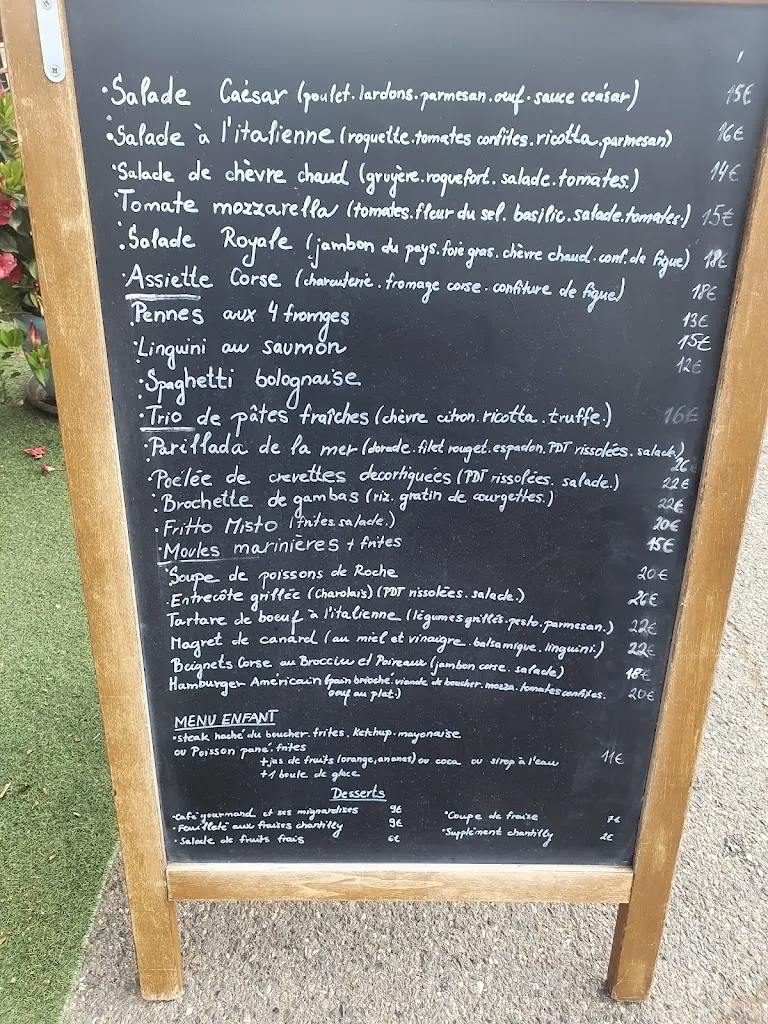 • Salade Caésar (poulet. lardons. parmesan. œuf. sauce ceásar) 15€
• Salade à l'italienne (roquette. tomates confites. ricotta. parmesan) 16€
• Salade de chèvre chaud (gruyère. roquefort. salade. tomates.) 14€
• Tomate mozzarella (tomates. fleur du sel. basilic. salade. tomates.) 15€
• Salade Royale (jambon du pays. foie gras. chèvre chaud. conf. de figue) 18€
• Assiette Corse (charcuterie. fromage corse. confiture de figue) 18€
• Pennes aux 4 fromges 13€
• Linguini au saumon 15€
• Spaghetti bolognaise 12€
• Trio de pâtes fraîches (chèvre citron. ricotta. truffe.) 16€
• Parillada de la mer (dorade. filet rouget. espadon. PDT rissolées. salade.) 26€
• Poêlée de crevettes decortiquées (PDT rissolées. salade.) 22€
• Brochette de gambas (riz. gratin de courgettes.) 22€
• Fritto Misto (frites. salade.) 20€
• Moules marinières + frites 15€
Soupe de poissons de Roche 20€
• Entrecôte grillée (Charolais) (PDT rissolées. salade.) 26€
Tartare de bœuf à l'italienne (légumes grillés. pesto. parmesan.) 22€
Magret de canard (au miel et vinaigre balsamique. linguini.) 22€
Beignets Corse au Brocciu et Poireaux (jambon corse. salade) 18€
Hamburger Américain (pain brioché. viande de boucher. mozza. tomates confites. 20€
œuf au plat.)
MENU ENFANT
• steak haché du boucher. frites. Ketchup. mayonaise
ou Poisson pané. frites
+ jus de fruits (orange, ananas) ou coca ou sirop à l'eau 11€
+ 1 boule de glace
Desserts
• Café gourmand et ses mignardises 9€
• Coupe de fraise 7€
• Feuilleté aux fraises chantilly 9€
• Supplément chantilly 2€
• Salade de fruits frais 6€